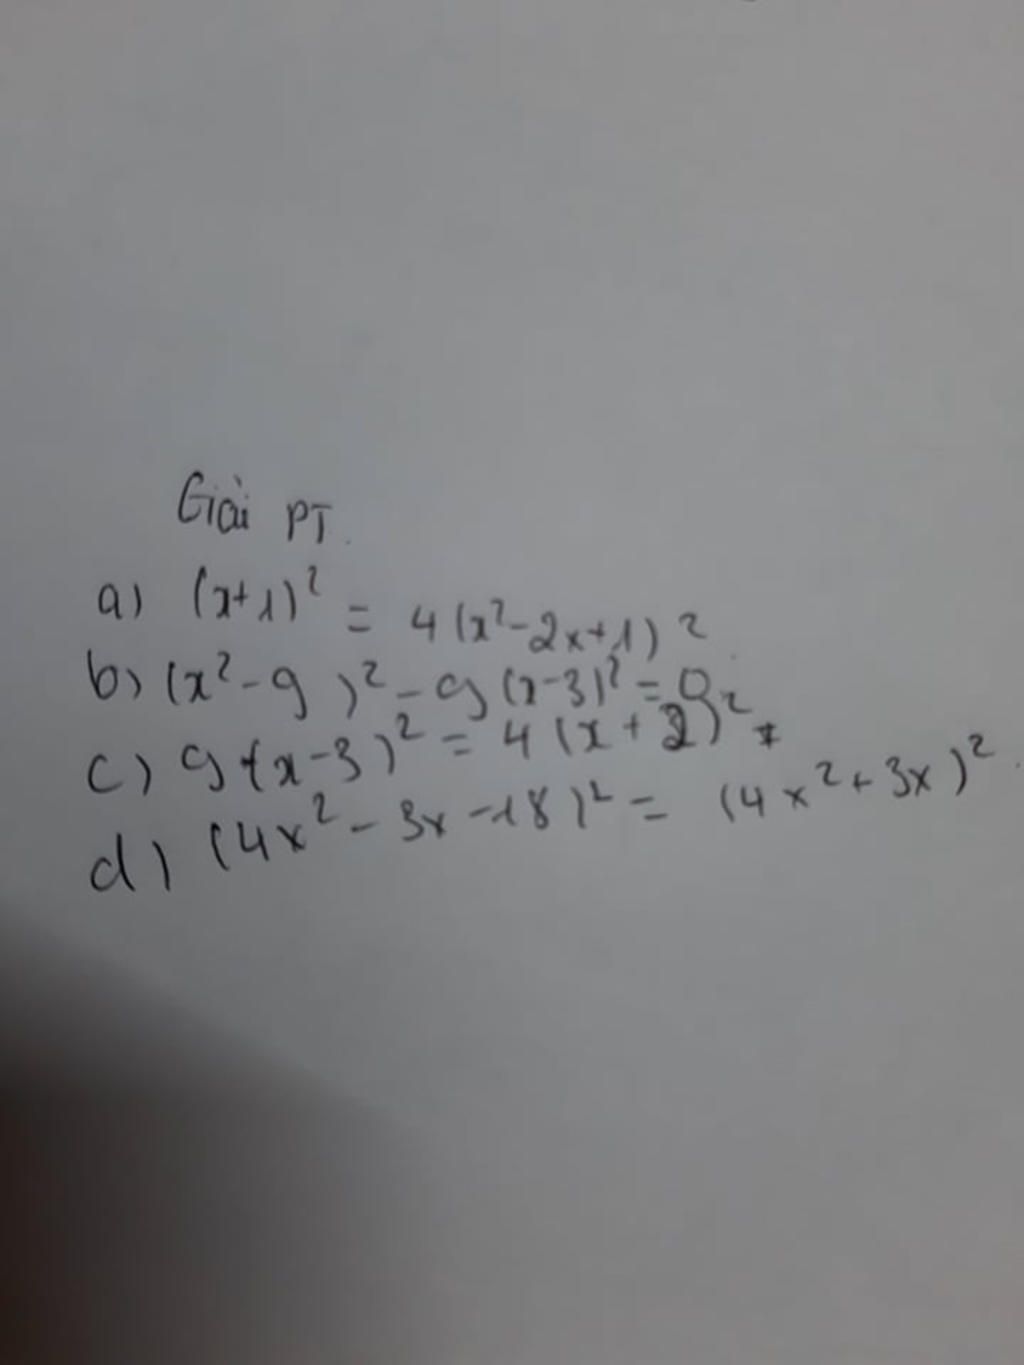 Giải PT.
a) (x+1)² = 4(x²-2x+1)²
b) (x²-9)² - 9(x-3)² = 0
c) 9(x-3)² = 4(x+2)²
d) (4x²-3x-18)² = (4x²+3x)²